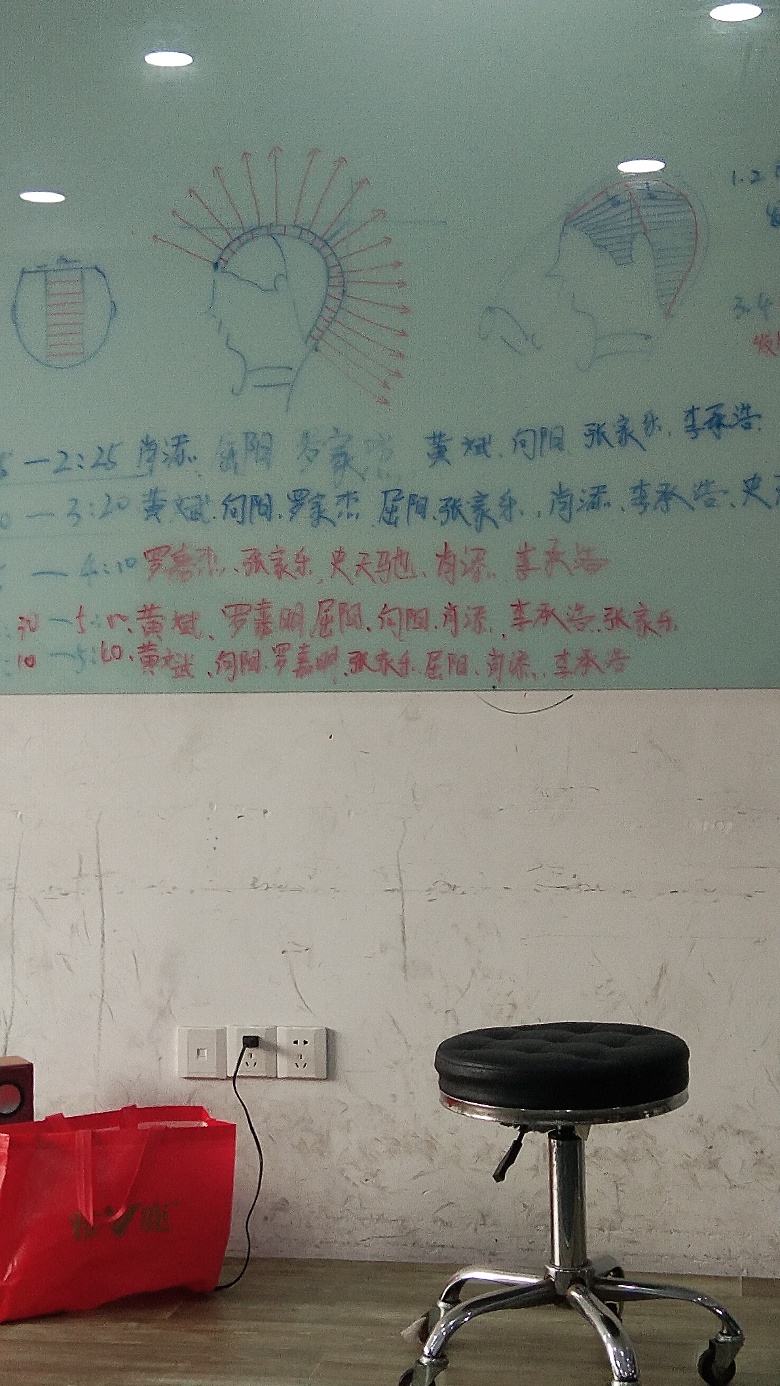 1.2
3.4
—2:25 肖添. 屈阳 罗家杰 黄斌. 向阳. 张家乐. 李承浩.
0 — 3:20 黄斌. 向阳. 罗家杰 屈阳. 张家乐. 肖添. 李承浩. 史天
— 4:10 罗家杰、张家乐、史天驰、肖添. 李承浩
:30 — 5:00. 黄斌、罗嘉明 屈阳. 向阳. 肖添. 李承浩. 张家乐
:10 — 5:60. 黄斌. 向阳. 罗嘉明. 张家乐. 屈阳. 肖添. 李承浩